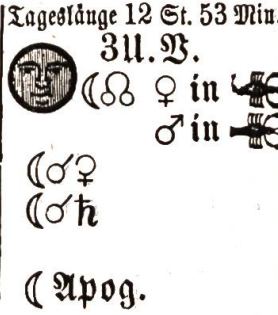 Tageslänge 12 St. 53 Min.
3 U. V.
☾☊ ♀ in
♂ in
☾☌♀
☾☌♄
☾ Apog.